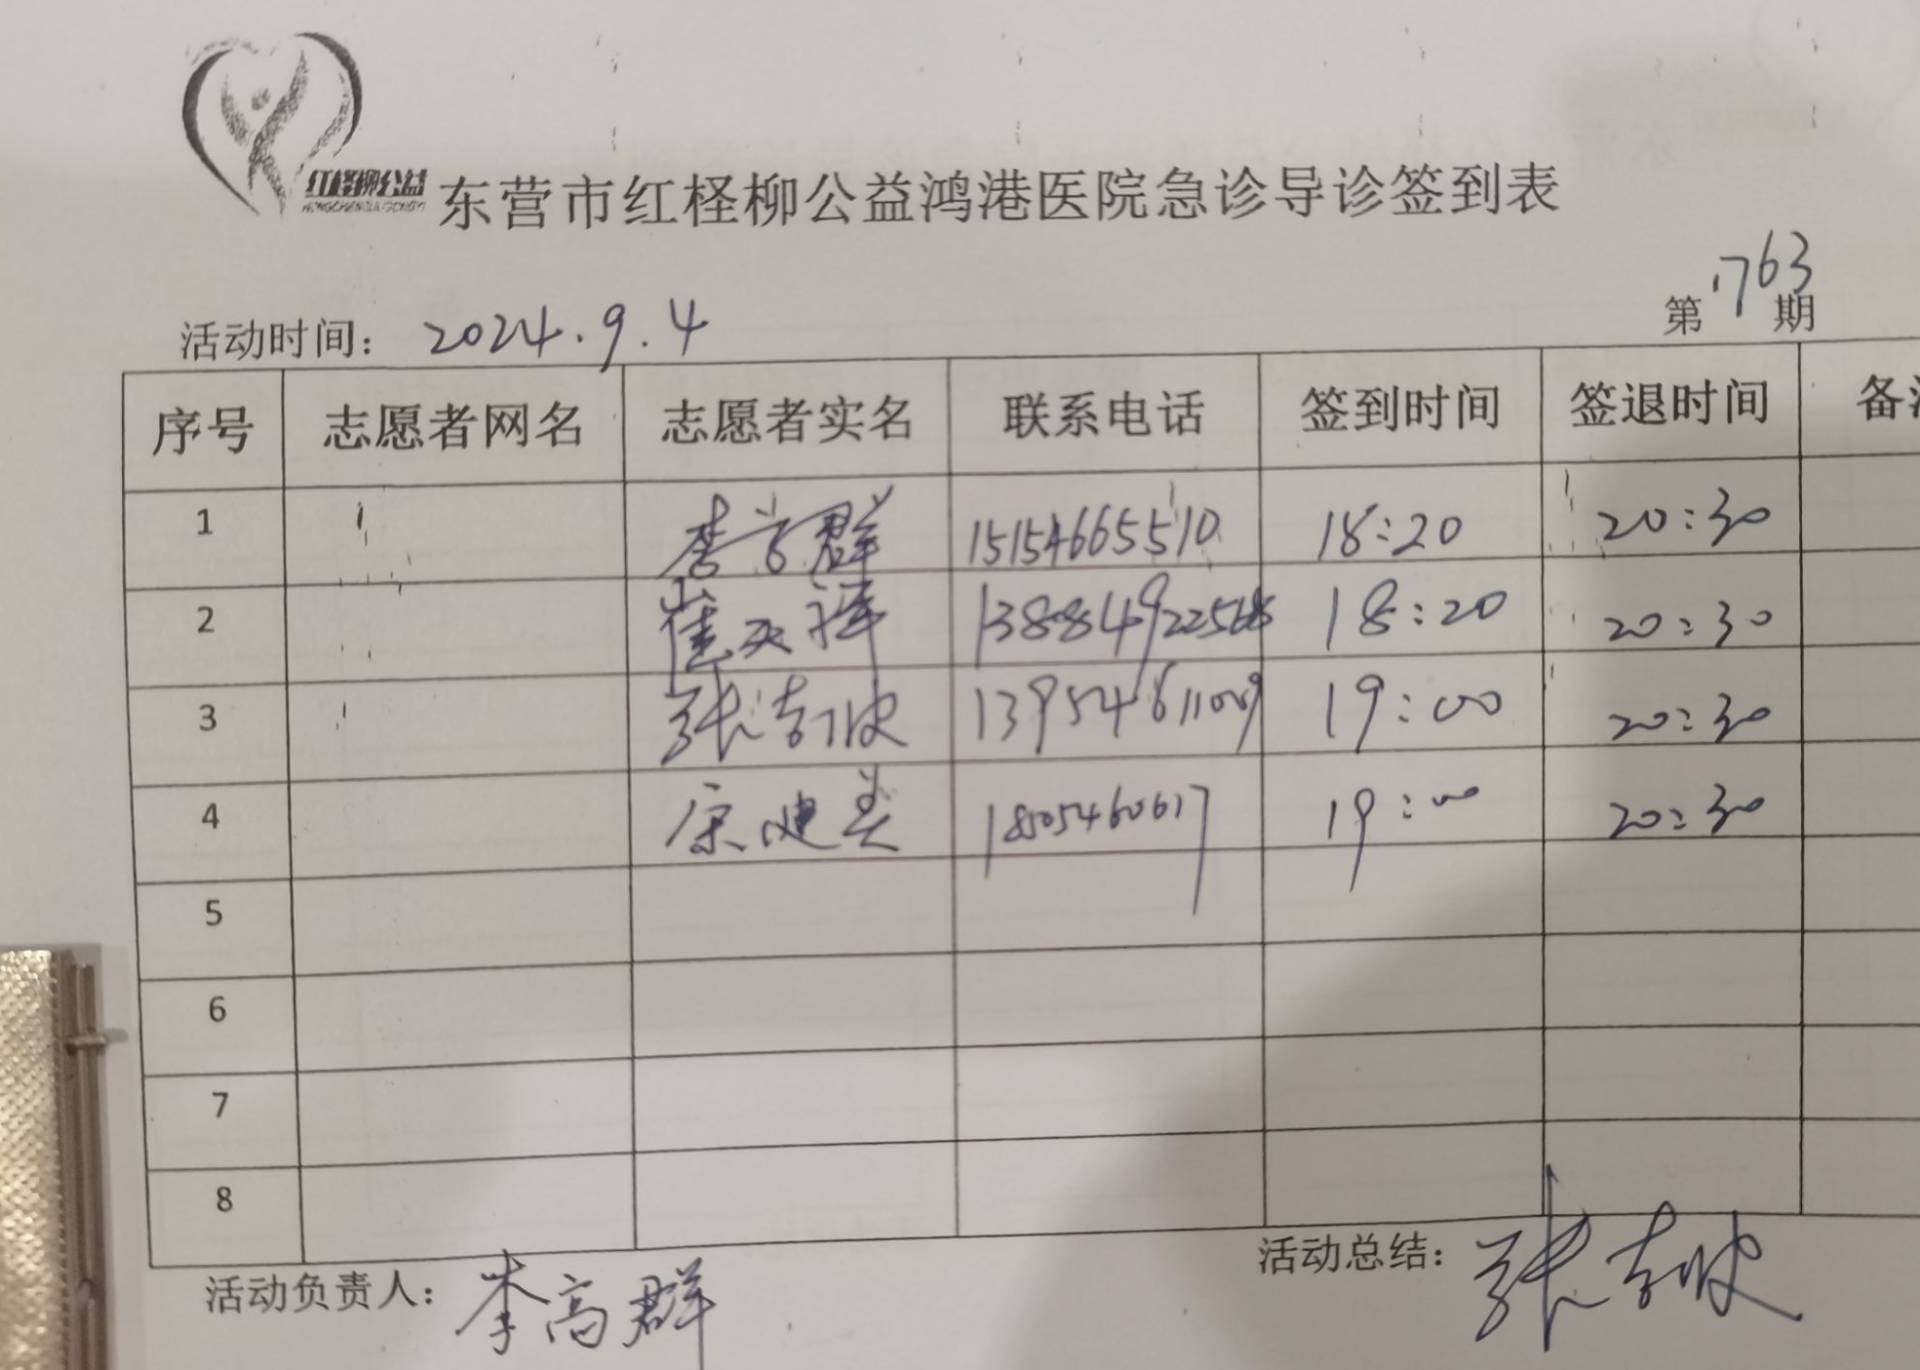 红柽柳公益
东营市红柽柳公益鸿港医院急诊导诊签到表
第1763期
活动时间： 2024.9.4
序号 志愿者网名 志愿者实名 联系电话 签到时间 签退时间 备
1 李高群 15154665510 18:20 20:30
2 崔天祥 18:20 20:30
3 张 19:00 20:30
4 康健美 18505460617 19:00 20:30
5
6
7
8
活动负责人： 李高群
活动总结： 张